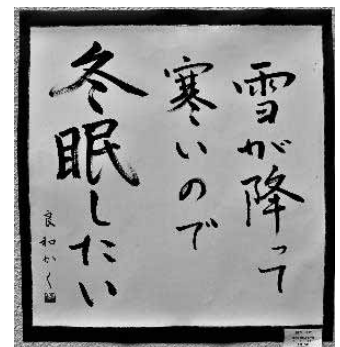 雪が降って
寒いので
冬眠したい
良和かく